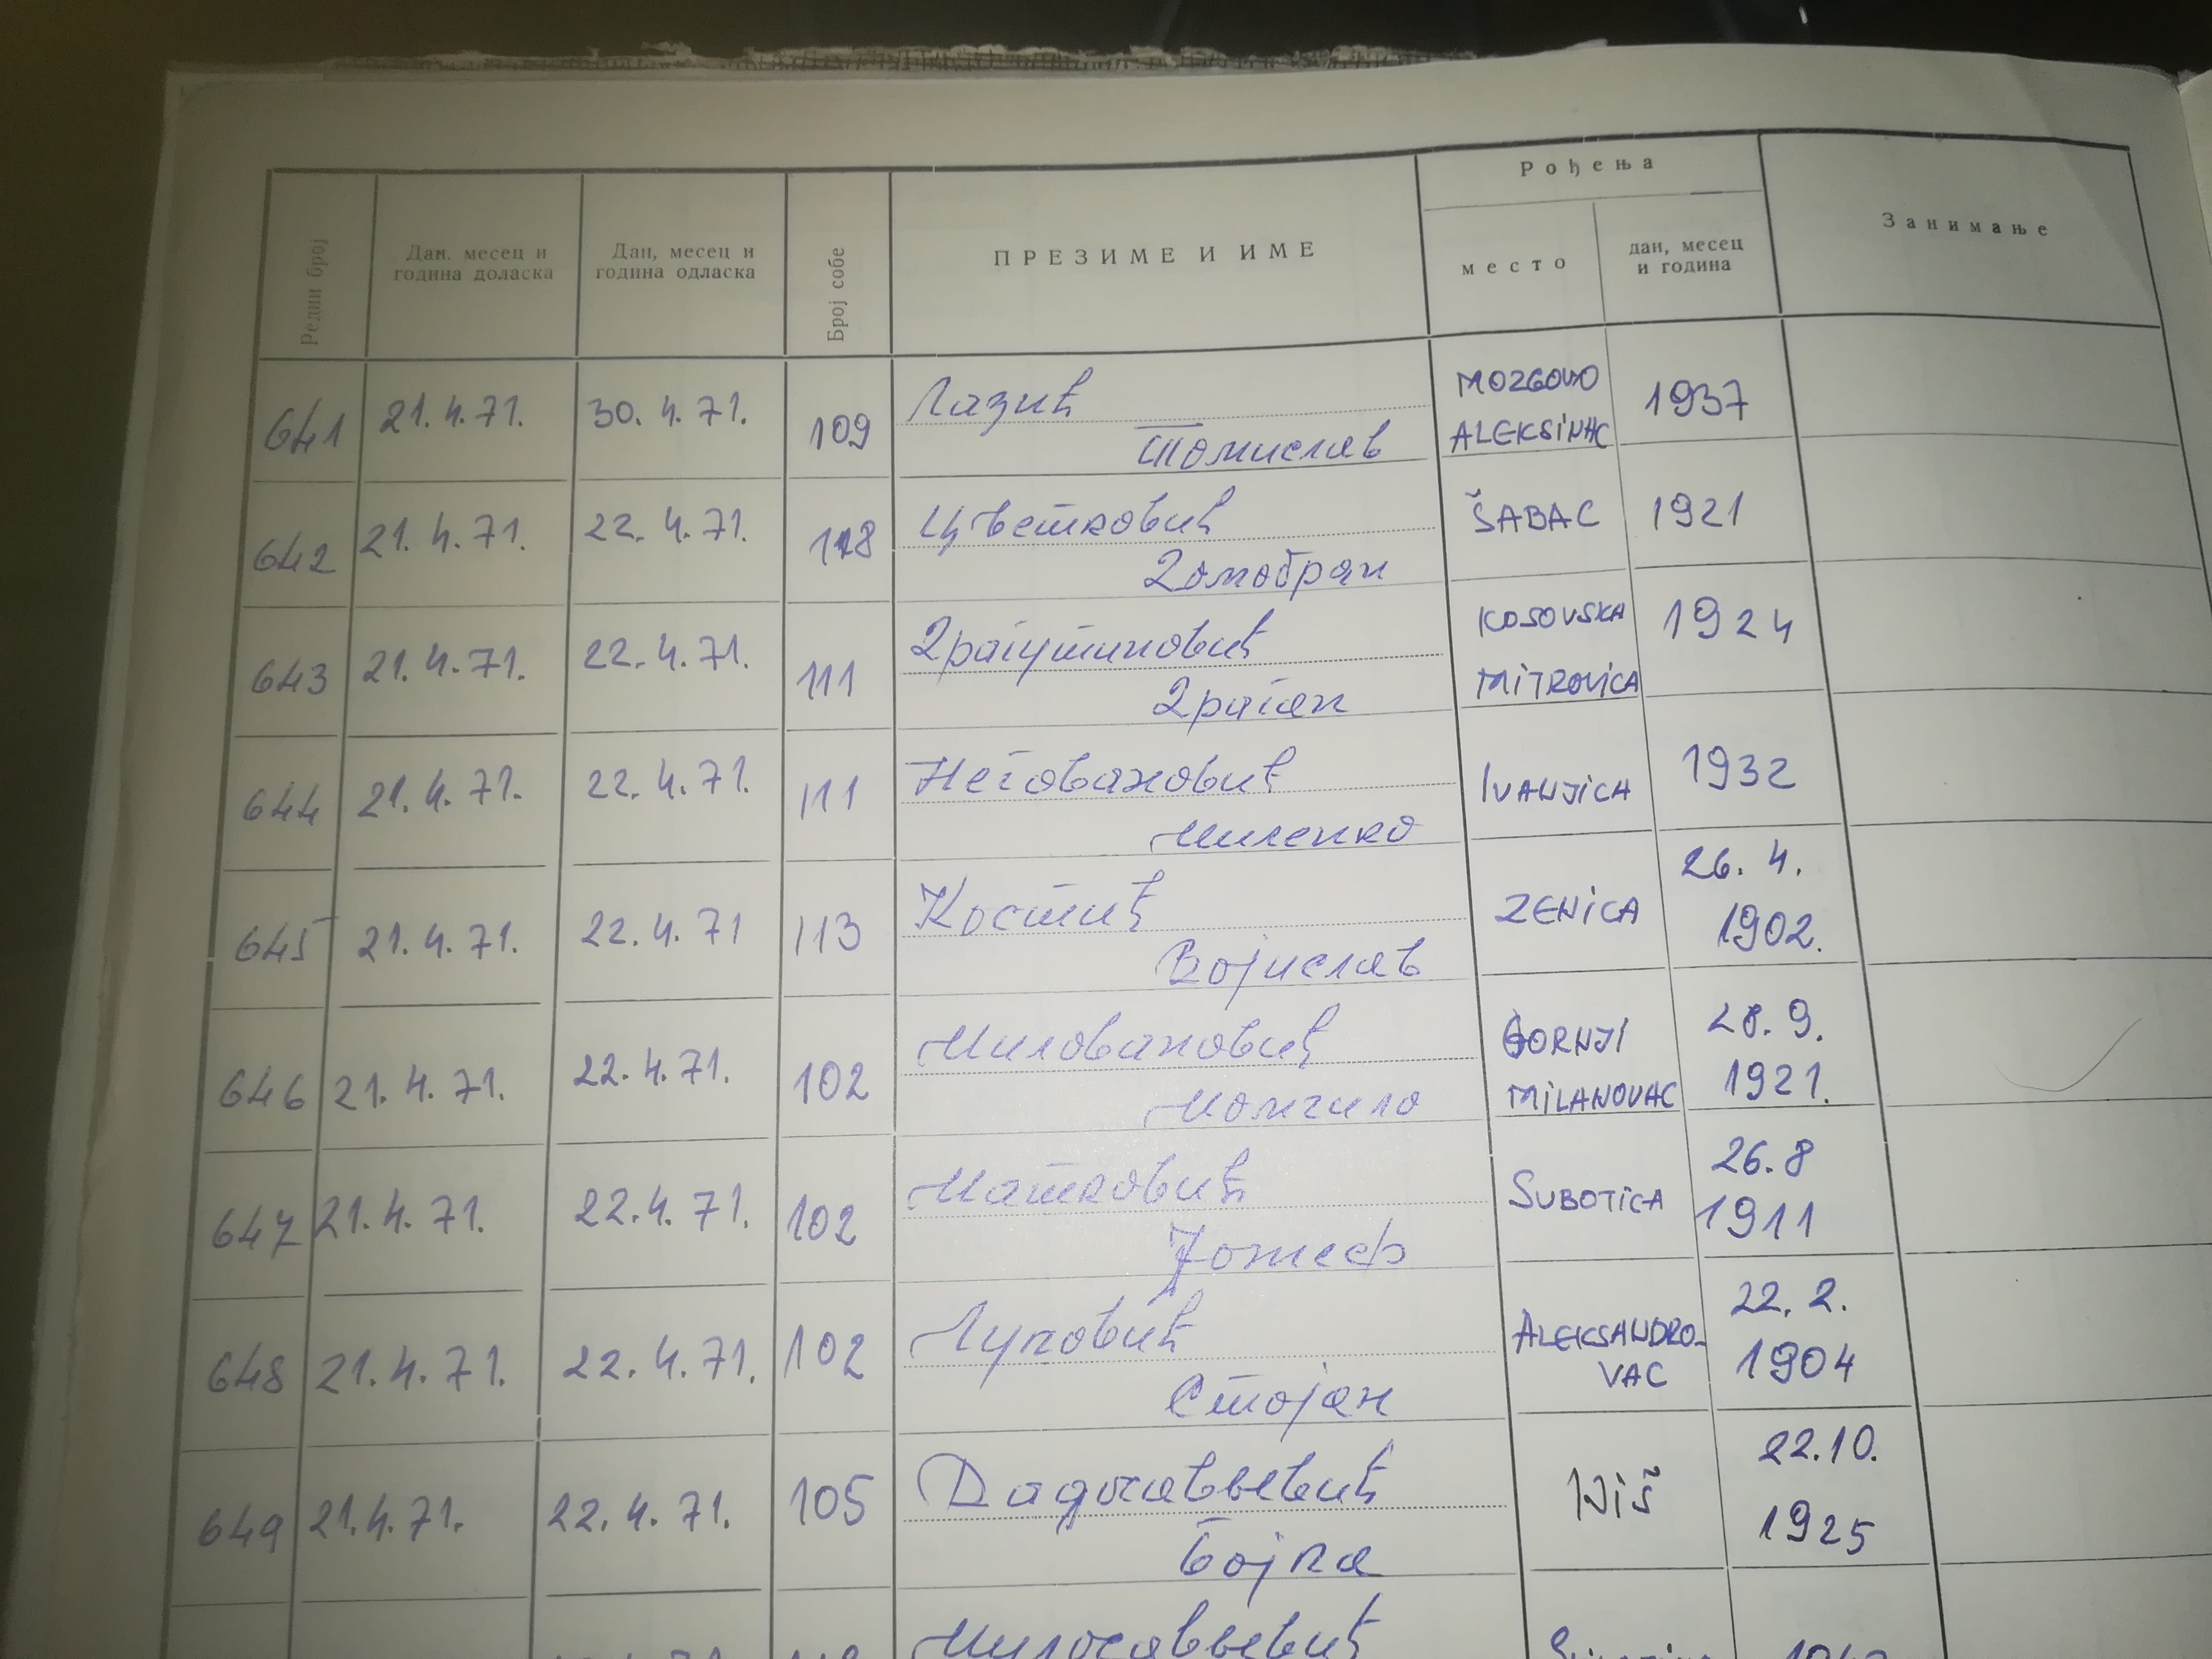 Рођења
Редни број
Дан, месец и
година доласка
Дан, месец и
година одласка
Број собе
ПРЕЗИМЕ И ИМЕ
место
дан, месец
и година
Занимање
641 21.4.71. 30.4.71. 109 Лазић MOZGOVO 1937
Томислав ALEKSINAC
642 21.4.71. 22.4.71. 118 Цветковић ŠABAC 1921
Домобран
643 21.4.71. 22.4.71. 111 Драгутиновић KOSOVSKA 1924
Драган MITROVICA
644 21.4.71. 22.4.71. 111 Неговановић IVANJICA 1932
Миленко
645 21.4.71. 22.4.71 113 Костић ZENICA 26.4.
Војислав 1902.
646 21.4.71. 22.4.71. 102 Миловановић GORNJI 28.9.
Момчило MILANOVAC 1921.
647 21.4.71. 22.4.71. 102 Матковић SUBOTICA 26.8
Јожеф 1911
648 21.4.71. 22.4.71. 102 ALEKSANDRO- 22.2.
Стојан VAC 1904
649 21.4.71. 22.4.71. 105 NIŠ 22.10.
Бојка 1925
Милосављевић